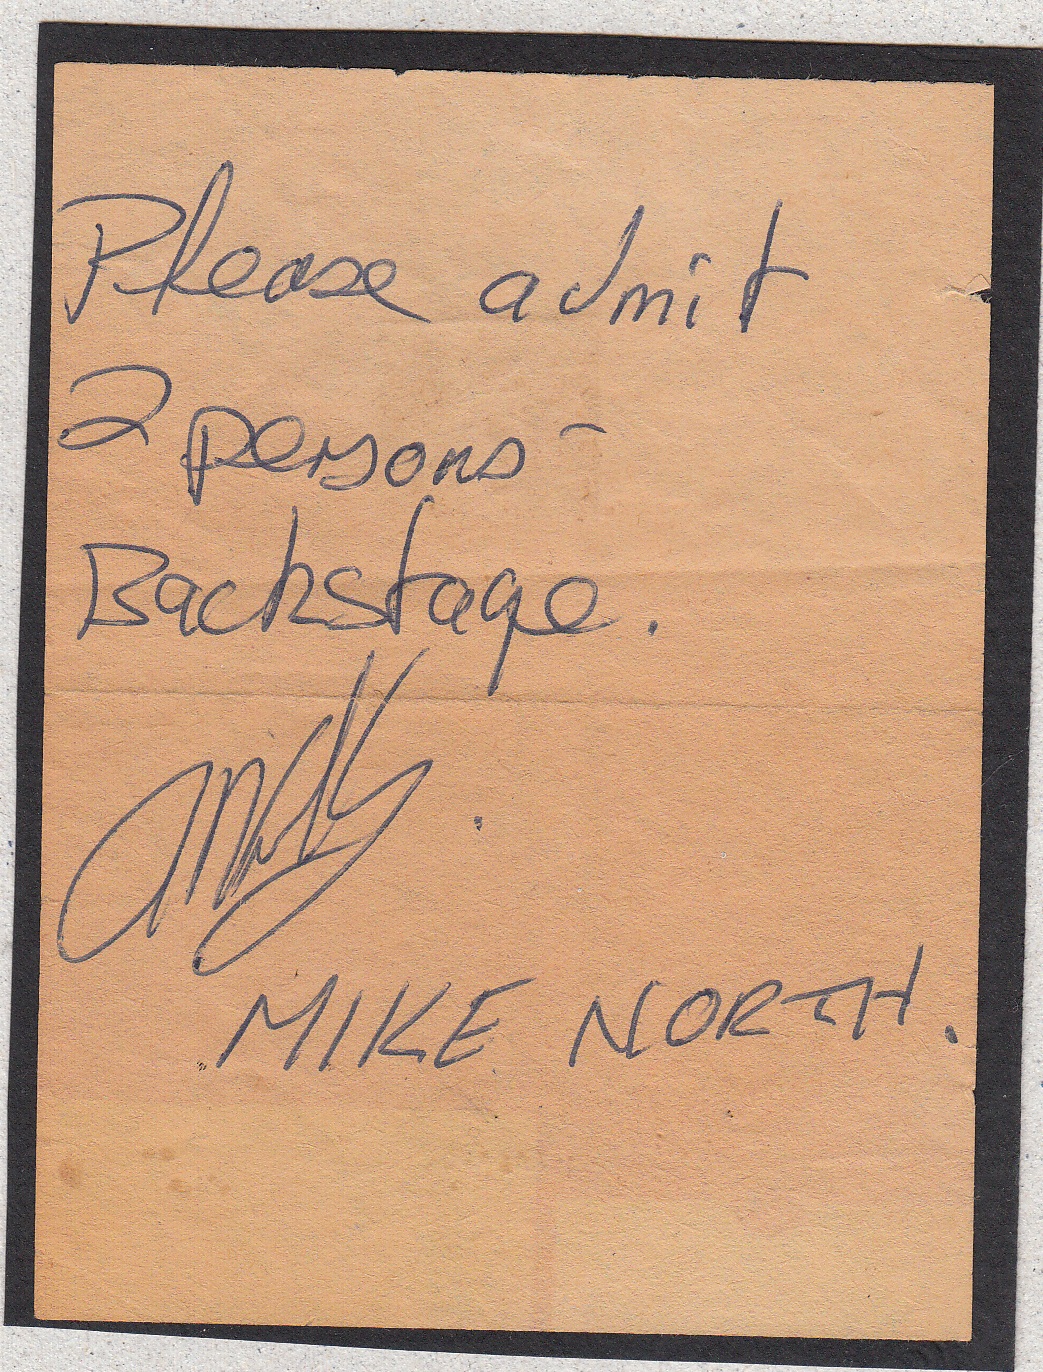 Please admit
2 persons -
Backstage.
Andy.
MIKE NORTH.